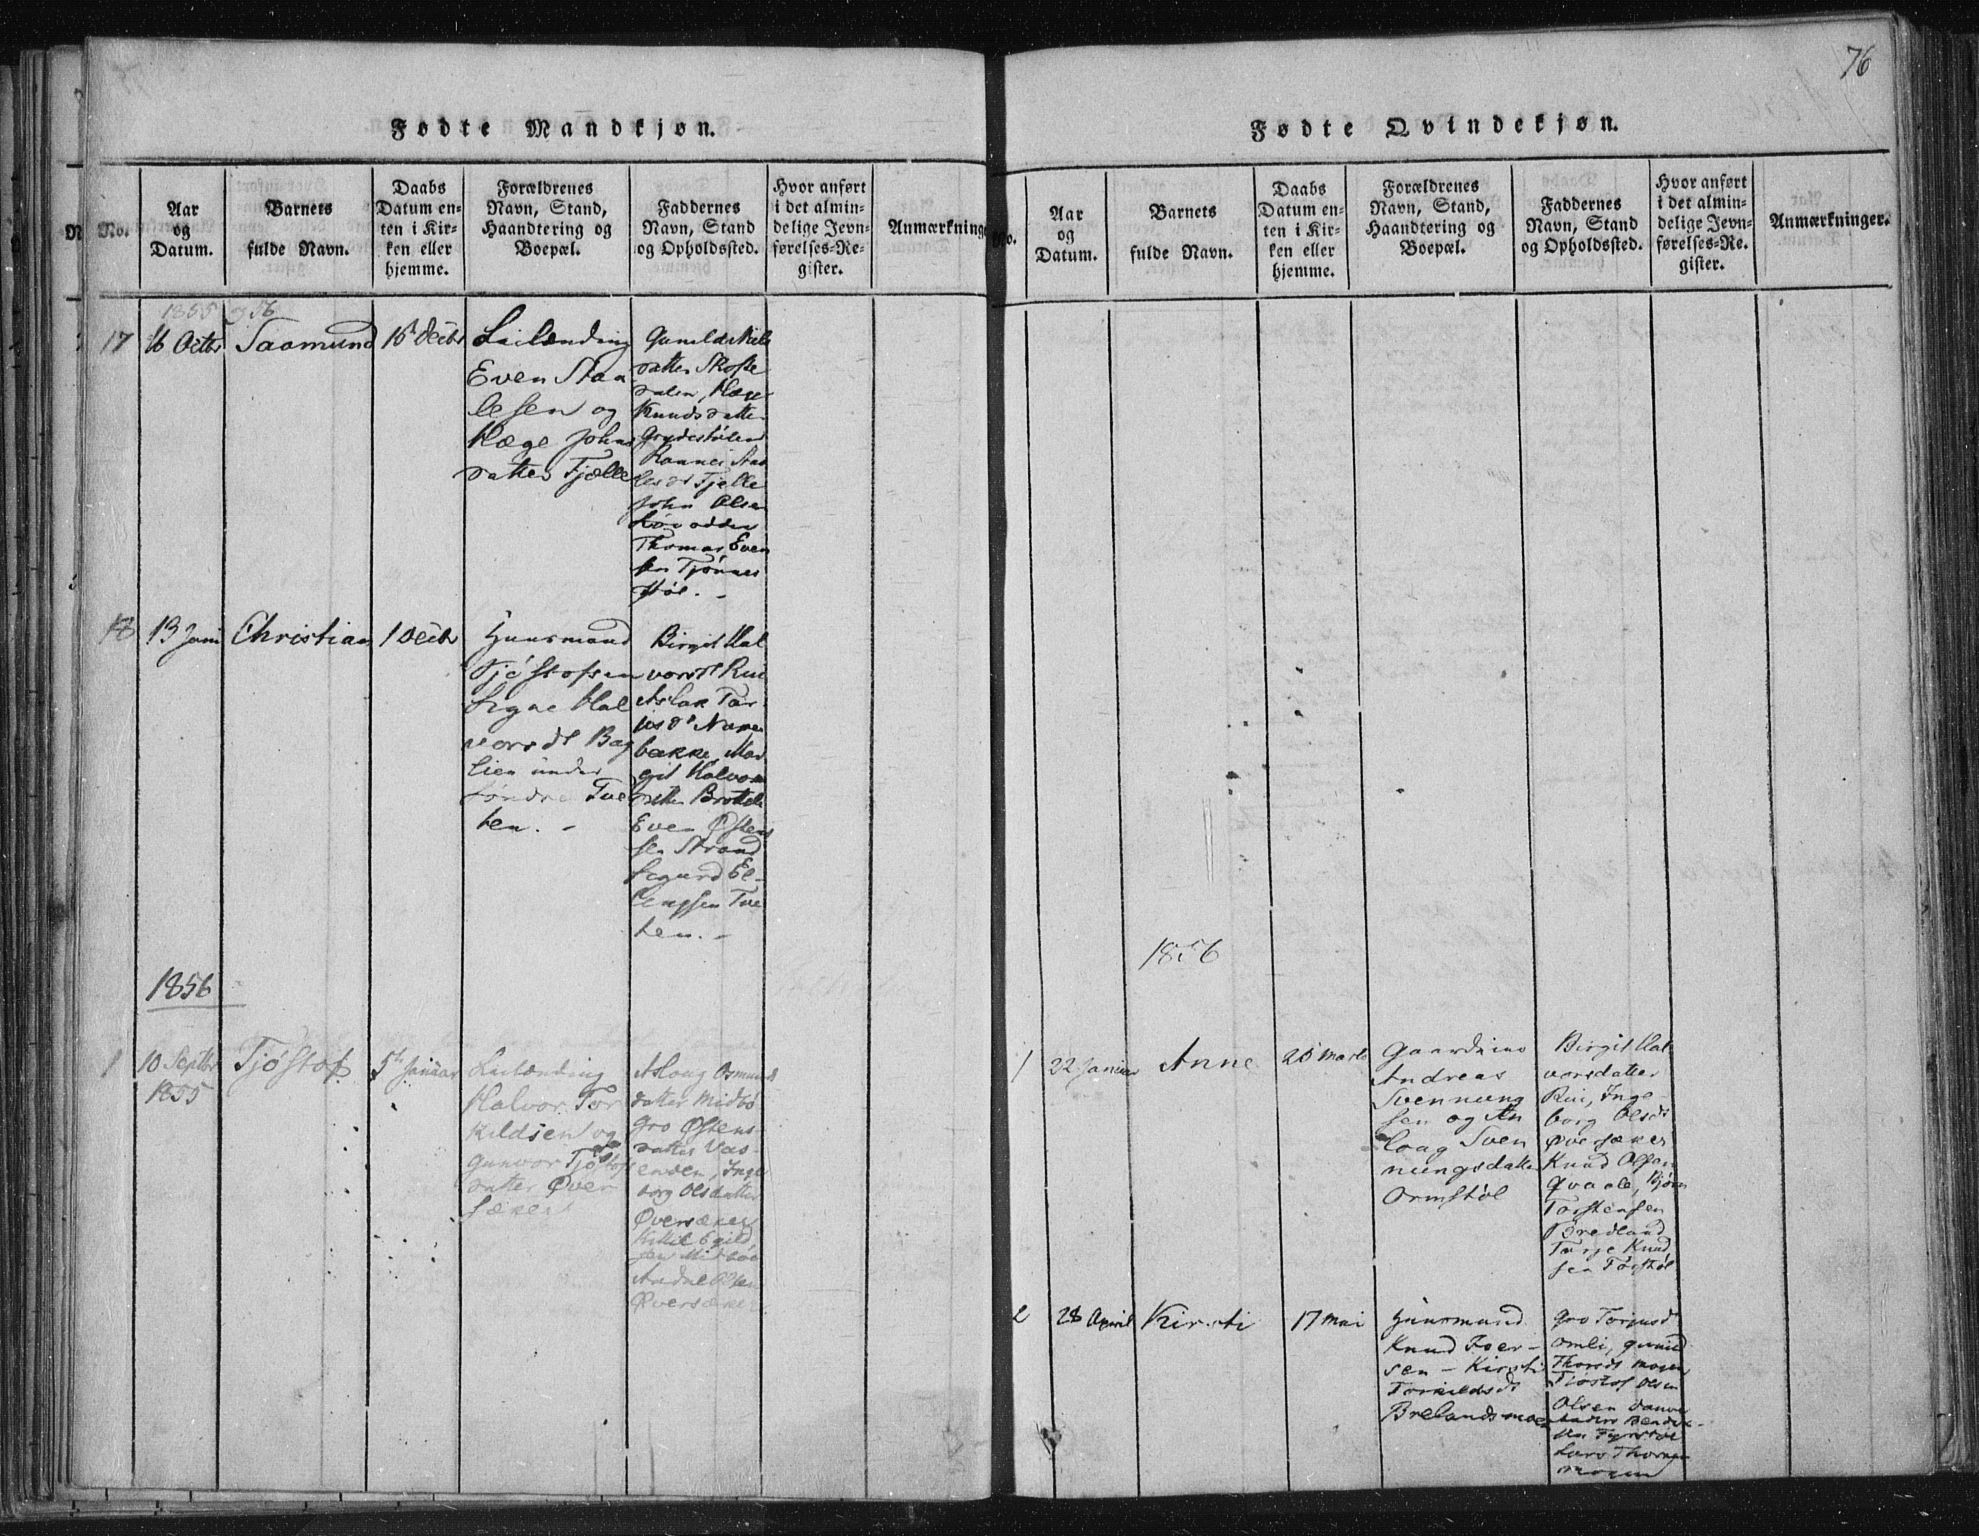 76
Fødte Mandkjøn.
No.
Aar
og
Datum.
Barnets
fulde Navn.
Daabs
Datum en-
ten i Kir-
ken eller
hjemme.
Forældrenes
Navn, Stand,
Haandtering og
Boepæl.
Faddernes
Navn, Stand
og Opholdssted.
Hvor anført
i det almin-
delige Jevn-
førelses-Re-
gister.
Anmærkninge
1855 56
17
16 Octbr
Saamund
16 Decbr
Leilænding
Even Staa
lesen og
Hæge Johns
datter Fjelle
datter Skofte
dalen,
Knudsdatter
Fjelle
John Olsen
Thomas Even
sen Tjønnes
støl. -
18
13 Juni
Christian
1 Decbr
Huusmand
Tjøstofsen
Signe Hal
vorsdt Bag
lien under
søndre Tve
ten. -
Birgit Hal
vorsdt Rui
Aslak Tar
bække, Mar
git Halvors
datter
Even Østens
sen Strand
Sigurd El-
lingsen Tve
ten. -
1856
1
10 Septbr
1855
Tjøstof
5te Januar
Leilænding
Halvor Tor
kildsen og
Gunvor Tjøstofs
datter Øver
sæker
Aslaug Osmunds
datter Midbø
Gro Østens
datter Vas-
enden, Inge
borg Olsdatter
Øversæker
Kittil Egild
sen Midbøe
Øversæker
Fødte Qvindekjøn.
No.
Aar
og
Datum.
Barnets
fulde Navn.
Daabs
Datum en-
ten i Kir-
ken eller
hjemme.
Forældrenes
Navn, Stand,
Haandtering og
Boepæl.
Faddernes
Navn, Stand
og Opholdssted.
Hvor anført
i det almin-
delige Jevn-
førelses-Re-
gister.
Anmærkninger.
1856
1
22 Januar
Anne
Andreas
Svennung
sen og As
laug Sven
nungsdatter
Ormstøl
Birgit Hal
vorsdatter
Rui, Inge
borg Olsdt
Øversæker
Knud Olsen
Qvaale, Bjørn
Torstensen
Bredland
Tarje Knud
sen
2
28 April
Kirsti
17 Mai
Huusmand
Knud Iver-
sen - Kirsti
Torkildsdt
Brelandsmoen
Gro Torjusd
Omli, Gunild
Thorsdt Moen
Tjøstof Olsen
Olsen
Lars Thorsen
Moen